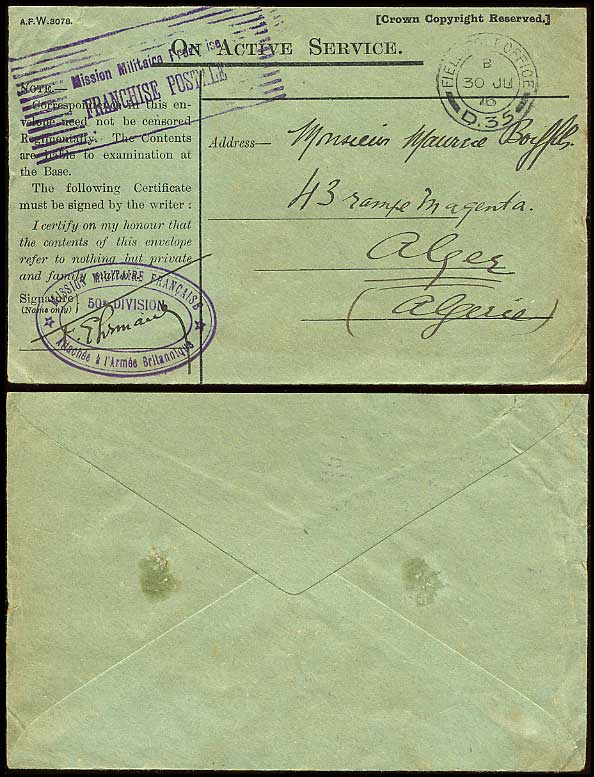 A.F.W.3078.
[Crown Copyright Reserved.]
ON ACTIVE SERVICE.
Mission Militaire Française
FRANCHISE POSTALE
FIELD POST OFFICE
B
30 JU
16
D.35
NOTE.—
Correspondence in this en-
velope need not be censored
Regimentally. The Contents
are liable to examination at
the Base.
The following Certificate
must be signed by the writer :
I certify on my honour that
the contents of this envelope
refer to nothing but private
and family matters.
Signature
(Name only)
MISSION MILITAIRE FRANÇAISE
50e DIVISION
Attachée à l'Armée Britannique
Address—
Monsieur Maurice
43 rampe Magenta.
Alger
(Algérie)